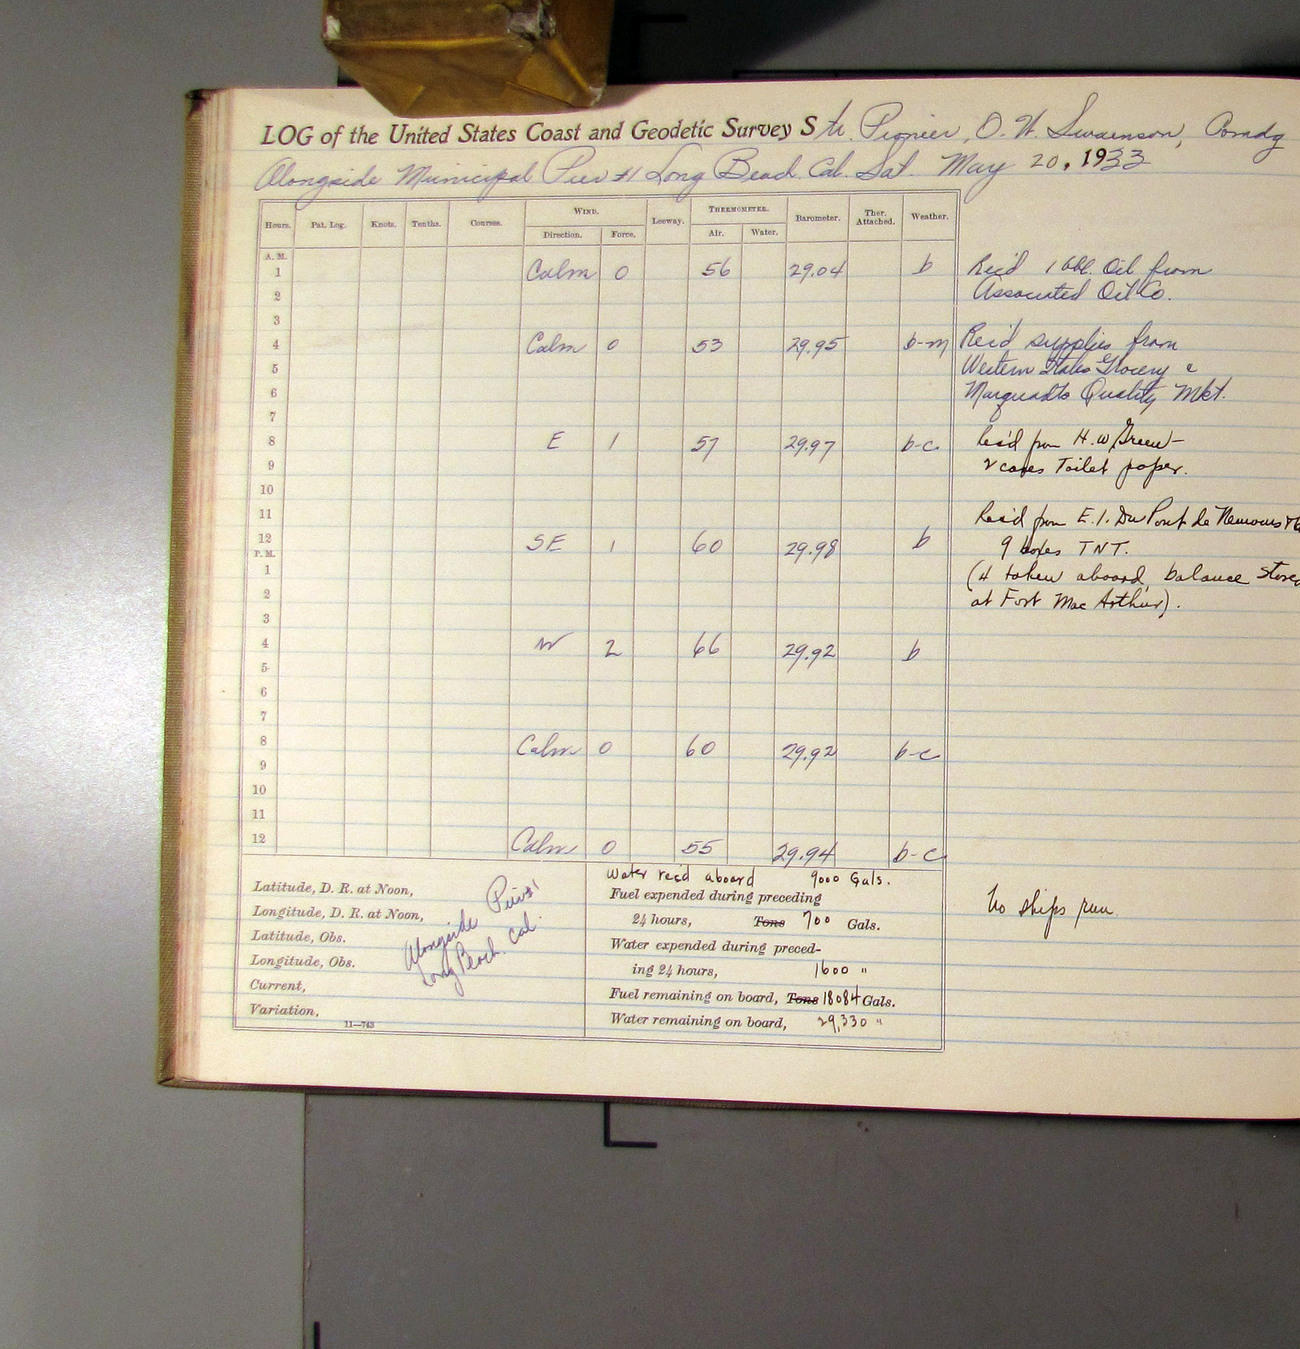 LOG of the United States Coast and Geodetic Survey Str. Pioneer, O. W. Swainson, Comdg
Alongside Municipal Pier #1 Long Beach. Cal. Sat. May 20, 1933
Hours. Pat. Log. Knots. Tenths. Courses. WIND. Leeway. THERMOMETER. Barometer. Ther. Attached. Weather.
Direction. Force. Air. Water.
A. M.
1 Calm 0 56 29.04 b Rec'd 1 bbl. Oil from
2 Associated Oil Co.
3
4 Calm 0 53 29.95 b-m Rec'd supplies from
5 Western States Grocery &
6 Marquardts Quality Mkt.
7
8 E 1 57 29.97 b-c Rec'd from H. W. Green—
9 2 cases Toilet paper.
10
11 Rec'd from E. I. Du Pont de Nemours &
12 SE 1 60 29.98 b 9 boxes TNT.
P. M.
1 (4 taken aboard, balance stored
2 at Fort Mac Arthur).
3
4 W 2 66 29.92 b
5
6
7
8 Calm 0 60 29.92 b-c
9
10
11
12 Calm 0 55 29.94 b-c
Latitude, D. R. at Noon,
Longitude, D. R. at Noon,
Latitude, Obs.
Longitude, Obs.
Current,
Variation,
11—743
Alongside Pier #1
Long Beach. Cal.
Water rec'd aboard 9000 Gals.
Fuel expended during preceding
24 hours, Tons 700 Gals.
Water expended during preced-
ing 24 hours, 1600 "
Fuel remaining on board, Tons 18084 Gals.
Water remaining on board, 29,330 "
No ships run